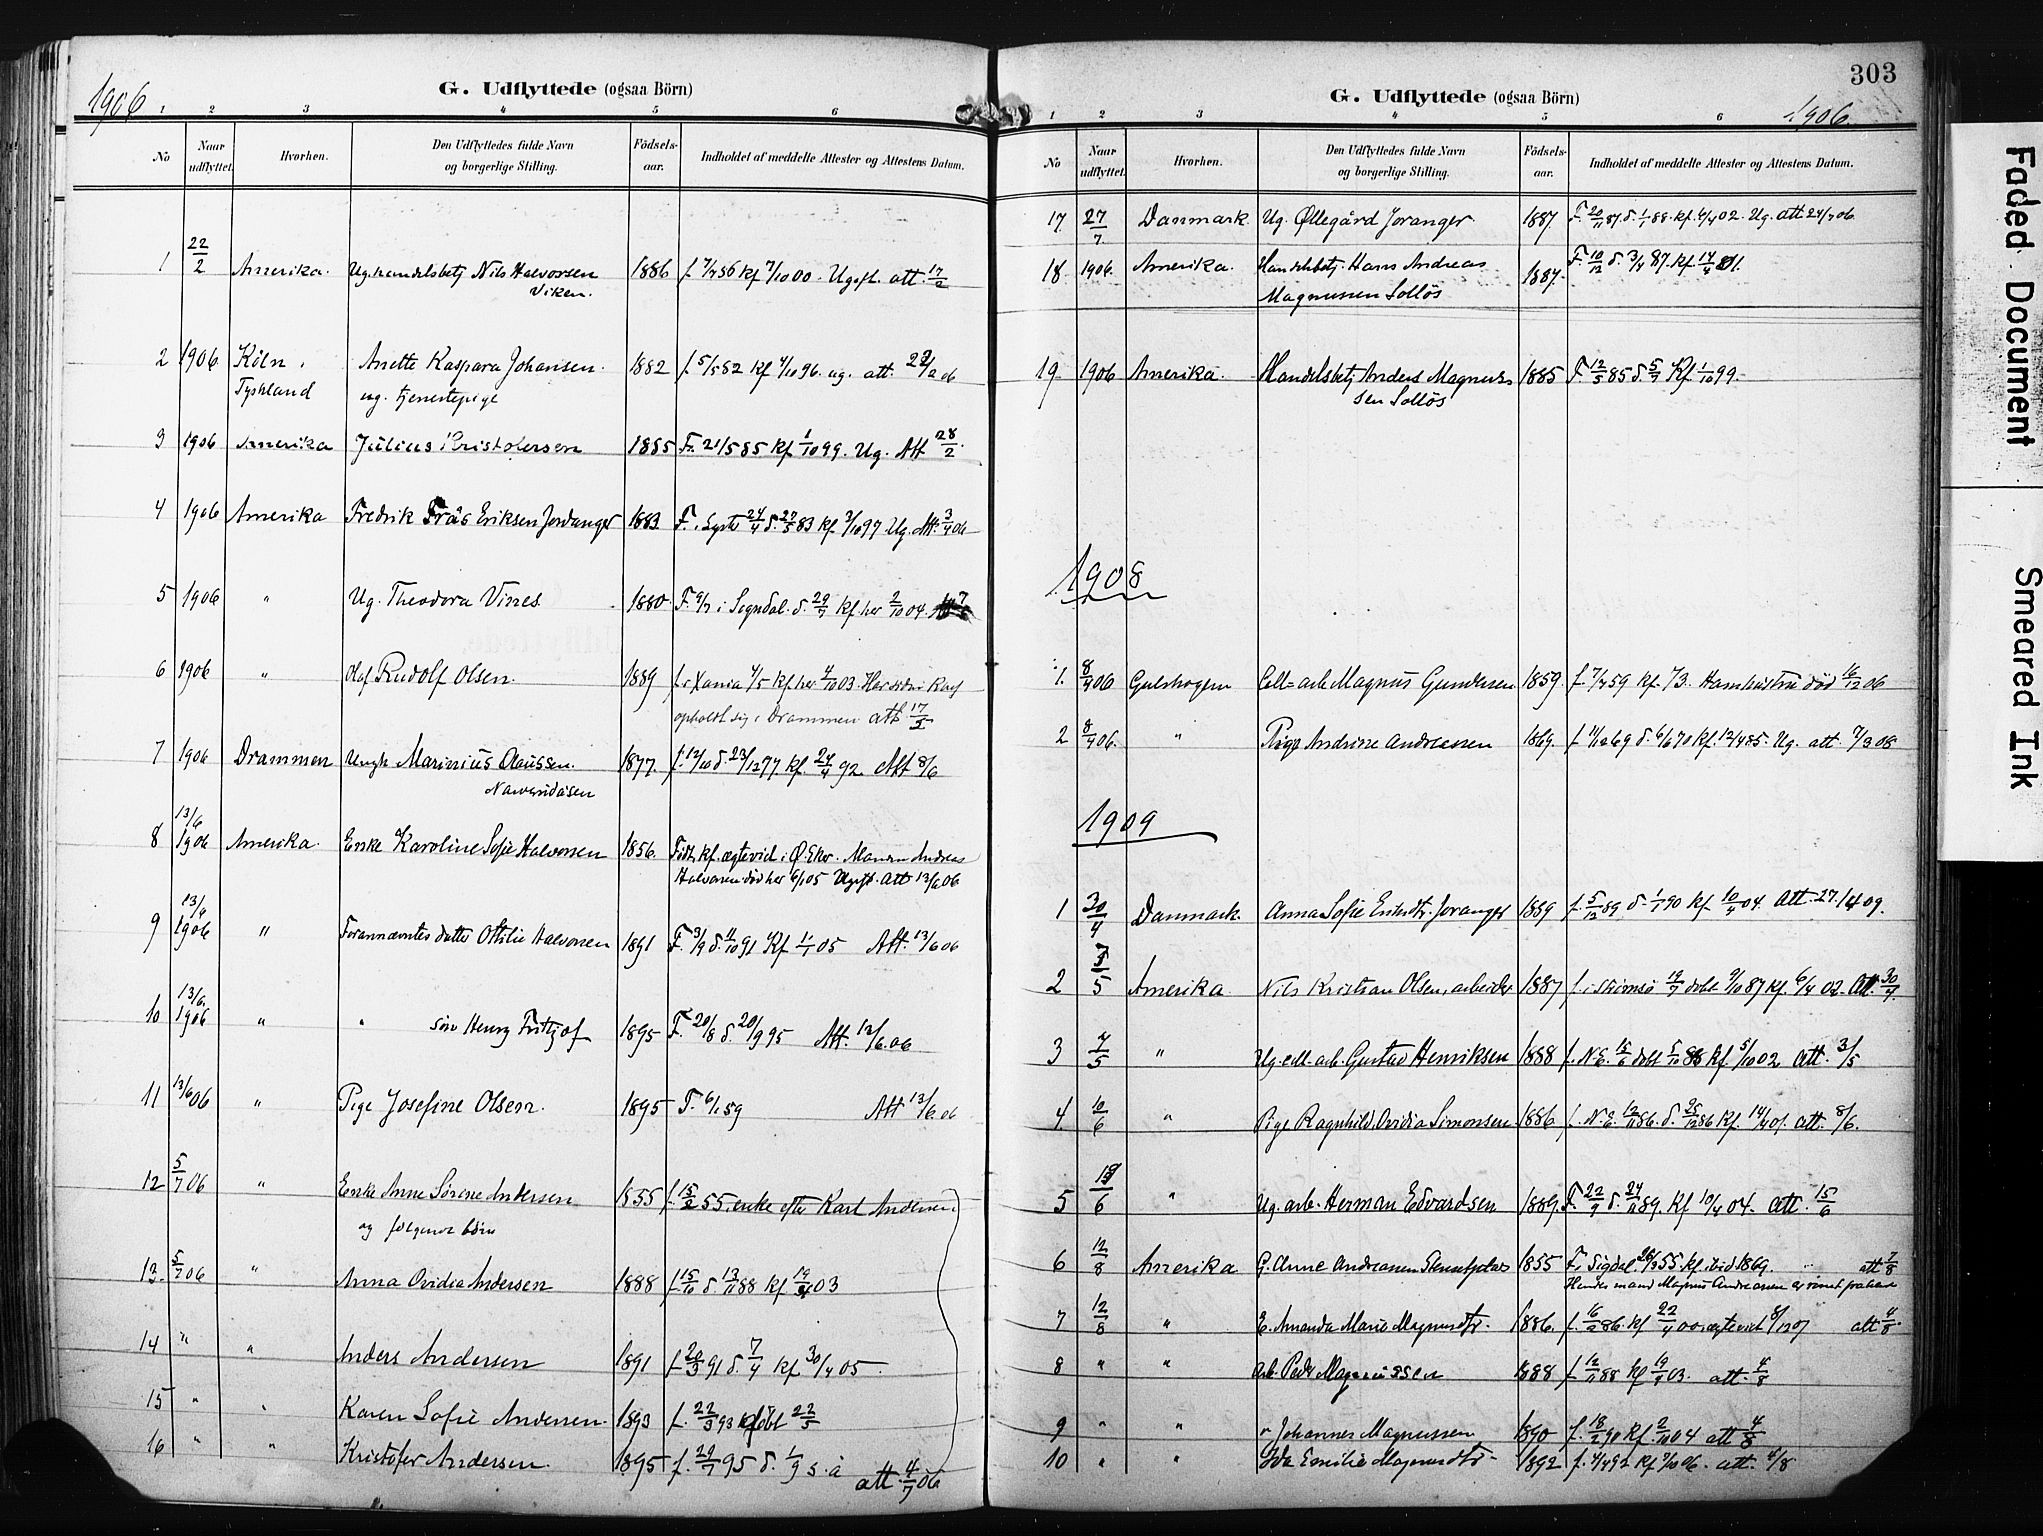 1906
G. Udflyttede (ogsaa Börn)
1 2 3 4 5 6
No
Naar udflyttet.
Hvorhen.
Den Udflyttedes fulde Navn og borgerlige Stilling.
Födsels-aar.
Indholdet af meddelte Attester og Attestens Datum.
1 22/2 Amerika. Nils Halvorsen 1886 kf 7/10 00. att. 17/2
Viken.
2 1906 Köln, Anette Kaspara Johansen. 1882 f. 5/5 82 kf 4/10 96. ug. att.
Tyskland ug. tjenestepige
3 1906 Amerika Julius Kristofersen 1885 F. 21/5 85 kf 1/10 99. Ug. Att 28/2
4 1906 Amerika Fredrik Eriksen Jordanger 1883 F. i Lyster 24/4 d. 27/5 83 kf 3/10 97 Ug. Att. 3/4 06
5 1906 " Ug. Theodora Vines 1880 F. 9/7 i Sogndal. d. 29/7 kf her 2/10 04.
6 1906 " Olaf Rudolf Olsen. 1889 f. i Xania 4/5 kf her 4/10 03.
opholdt sig i Drammen att 17/5
7 1906 Drammen Ungk Marinius Olaussen. 1877. f. 12/10 d. 23/12 77. kf. 24/4 92. Att 8/6
8 13/6 1906 Amerika. Enke Karoline Sofie Halvorsen 1856. Født, kf. ægtevid i Ø. Eker. Manden Andreas
Halvorsen død her 6/1 05 Ugift. Att 13/6 06
9 13/6 1906 " Forannævntes datter Ottilie Halvorsen 1891 F. 3/9 d. 11/10 91 Kf. 1/7 05 Att. 13/6 06
10 13/6. 1906 " " Søn Henry Fritjof 1895 F. 20/8 d. 20/9 95 Att. 13/6.06
11 13/6 06 " Pige Josefine Olsen. 1895 F. 6/1 59 Att 13/6.06
12 5/7 06 " Enke Anne Sørine Andersen 1855 f. 15/2 55, enke efter Karl Andersen
og følgende börn
13. 5/7 06 " Anna Ovidia Andersen 1888 f. 15/10 d. 13/11 88 kf 19/4 03
14 " " Anders Andersen 1891 f. 20/3 91 d. 7/4 kf 30/4 05
15 " " Karen Sofie Andersen. 1893 f. 22/3 93 døbt 22/5
16 " " Kristofer Andersen. 1895 f. 29/7 95 d. 1/9 s. å
att. 4/7 06
303
G. Udflyttede (ogsaa Börn)
1906.
1 2 3 4 5 6
No
Naar udflyttet.
Hvorhen.
Den Udflyttedes fulde Navn og borgerlige Stilling.
Födsels-aar.
Indholdet af meddelte Attester og Attestens Datum.
17. 27/7 Danmark Ug. Øllegård Joranger 1887. F. 20/11 87. d. 1/1 88. kf. 6/4 02. Ug. att. 24/7 06
18 1906. Amerika. Handelsbetj. Hans Andreas 1887. F. 10/12 d. 3/4 87. kf. 14/4 01.
Magnussen Solløs
19. 1906 Amerika. Handelsbetj. Anders Magnus 1885 F. 12/5 85 d. 5/7 Kf. 1/10 99.
sen Solløs
1908
1. 8/4 06 Gulskogen Magnus Gundersen 1859. f. 7/4 59 kf. Hans hustru død 16/12 06
2 8/4 06. " Pige Andrine Andreassen 1869. Ug. att. 7/3 08
1909
1 30/4 Danmark Anna Sofie Joranger 1889 f. 5/12 89 d. 1/1 90 kf 10/4 04. Att. 27/4 09.
2 5 Amerika Nils Kristian Olsen, arbeider 1887 f. i Strömsö 19/7 døbt 9/10 87 kf. 6/4 02. Att. 30/4.
3 4/5 " Ug. cell. arb. Gustav Henriksen 1888 f. N.E. 15/6 døbt 5/10 88 kf 5/10 02 Att. 3/5
4 10/6 " Pige Ragnhild Ovidia Simonsen 1886 f. N.E. 12/11 86. d. 25/12 86 Kf. 14/4 01. att. 8/6.
5 6 " Ug. arb. Herman Edvardsen 1889. F. 22/9 d. 24/11 89. Kf 10/4 04. Att. 15/6
6 12/8 Amerika G. Anne Andreassen 1855 F. i Sigdal 55. kf. ibid 1869. att 7/8
Hendes mand Magnus Andreassen er rømt fra hende
7 12/8 " E. Amanda Marie Magnusdtr. 1886. f. 16/2 86. kf. 22/4 00 ægtevid 8/12 07 att 4/8.
8 " " arb. Peder Magnussen 1888 f. 12/11 88 kf 19/4 03. att. 4/8
9 " " " Johannes Magnussen 1890 f. 18/2 90 kf. 2/10 04 att 4/8
10 " " Ida Emilie Magnusdtr. 1892 f. 4/4 92 att. 4/8
Faded Document
Smeared Ink